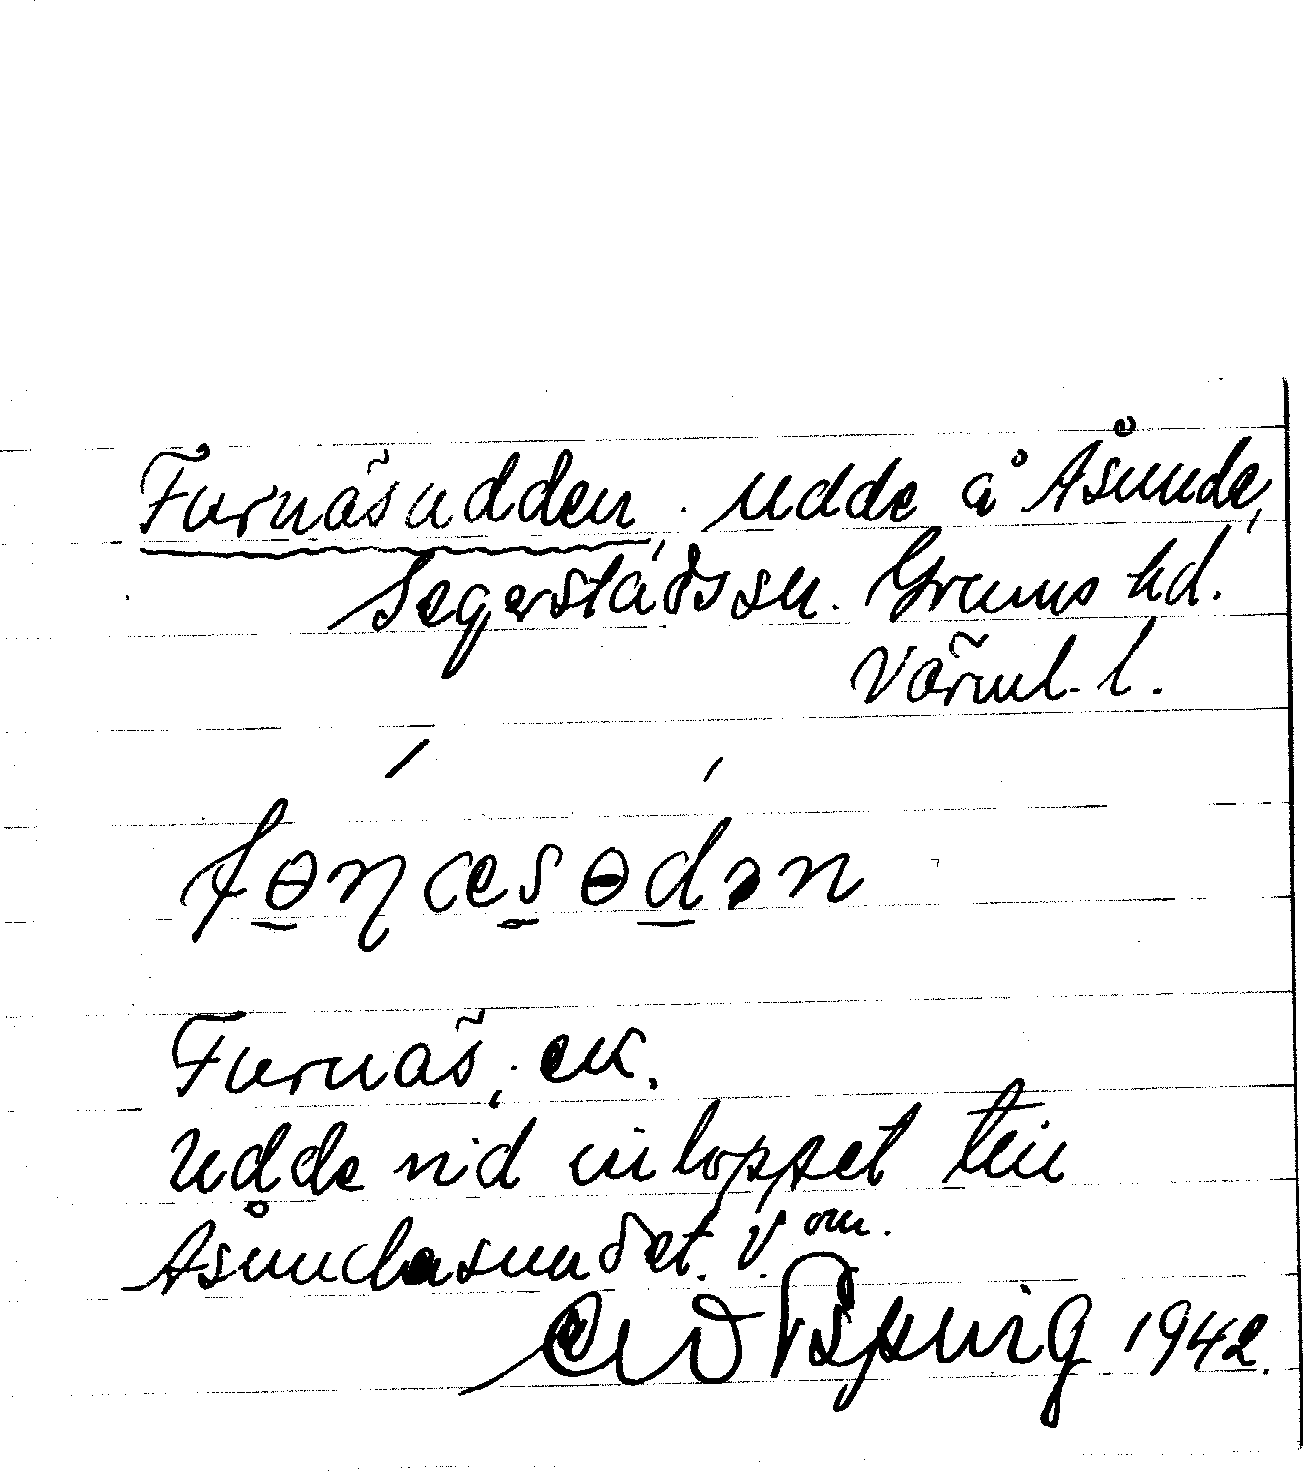 Furnäsudden, udde å Åsunda,
Segerstads sn. Grums hd.
Värml. l.
fɵɳæsɵdən
Furnäs, ek.
Udde vid inloppet till
Åsundasundet. V om.
1942.